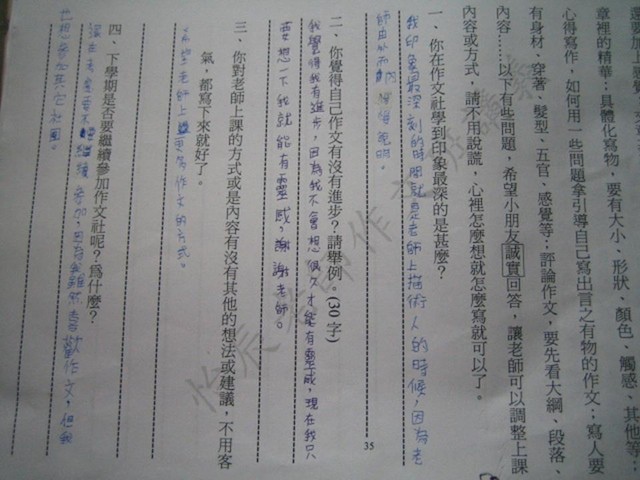 章裡的精華；具體化寫物，要有大小、形狀、顏色、觸感、其他等；
心得寫作，如何用一些問題拿引導自己寫出言之有物的作文；寫人要
有身材、穿著、髮型、五官、感覺等；評論作文，要先看大綱、段落、
內容……以下有些問題，希望小朋友誠實回答，讓老師可以調整上課
內容或方式，請不用說謊，心裡怎麼想就怎麼寫就可以了。
一、你在作文社學到印象最深的是甚麼？
我印象最深刻的時間就是老師上描術人的時候，因為老
師由外而內
二、你覺得自己作文有沒有進步？請舉例。(30字)
我覺得我有進步，因為我不會想很久才能有靈感，現在我只
要想一下我就能有靈感，謝謝老師。
三、你對老師上課的方式或是內容有沒有其他的想法或建議，不用客
氣，都寫下來就好了。
老師上更多作文的方式。
四、下學期是否要繼續參加作文社呢？為什麼？
繼續參加，因為我雖然喜歡作文，但我
也想參加其它社團。
35